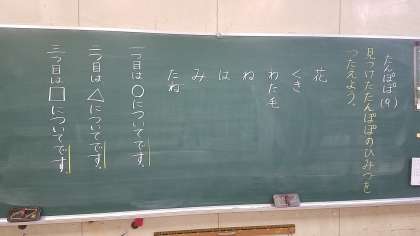 たんぽぽ(9)
見つけたたんぽぽのひみつを
つたえよう。
花
くき
わた毛
ね
は
み
たね
一つ目は○についてです。
二つ目は△についてです。
三つ目は□についてです。